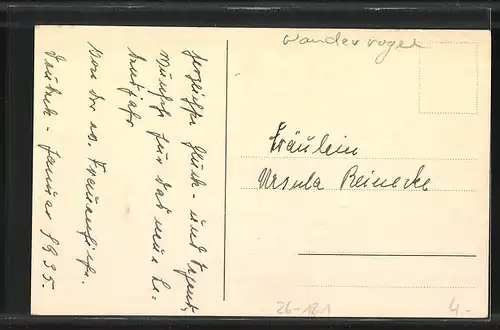 Wandervogel
herzliche Glück- und Segens-
wünsche für das neue Le-
bensjahr
Von der ev. Frauenhilfe.
Januar 1935.
Fräulein
Ursula Reinecke
26-181
4.-